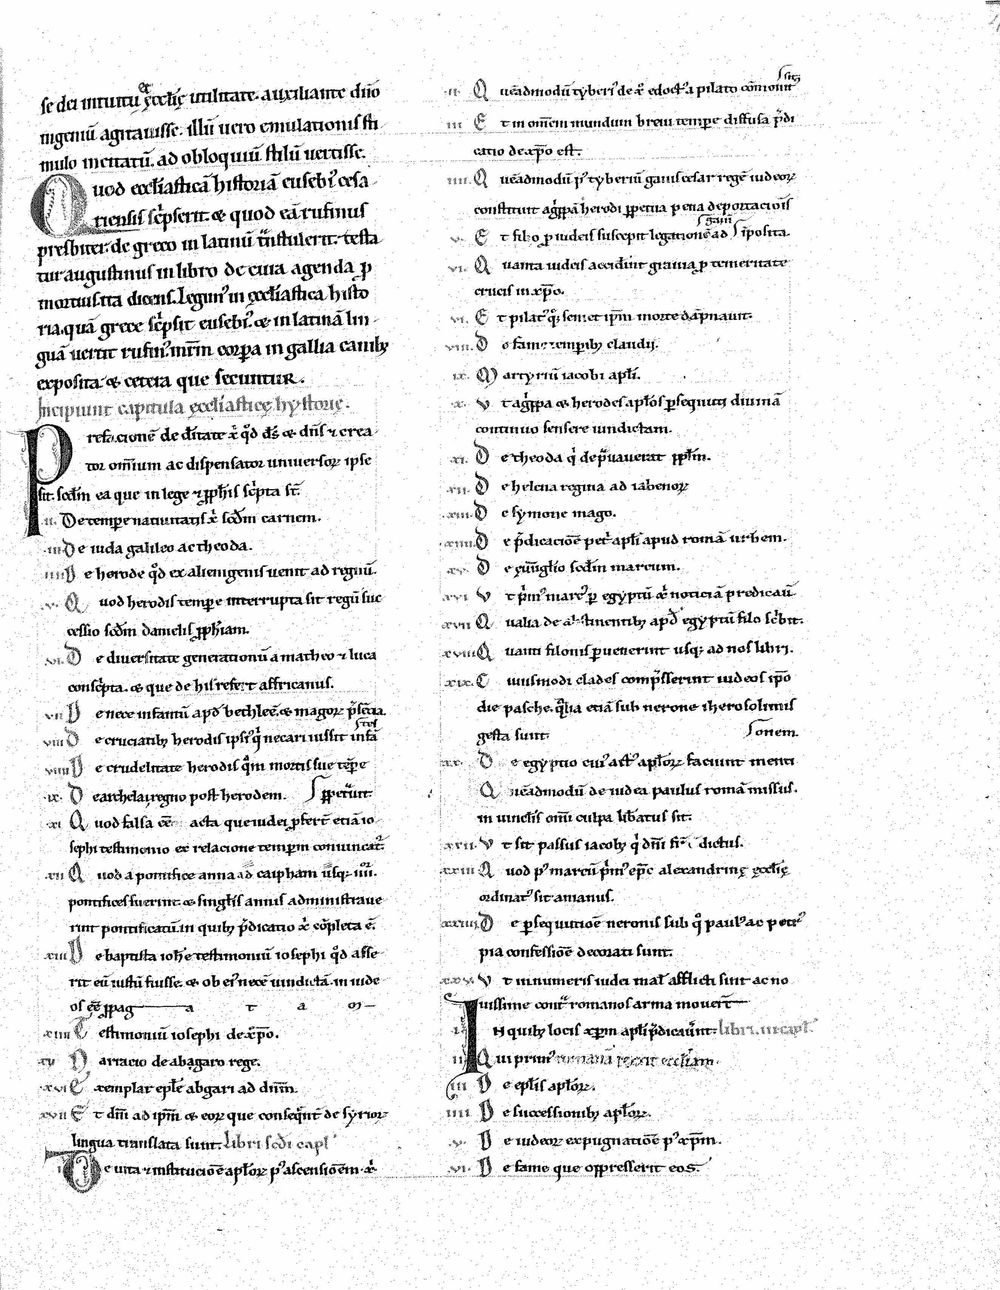 se dei intuitu &̄ ęcclię utilitate. auxiliante diuo
ingeniū agitauisse. illū uero emulationis sti
mulo incitatū. ad obloquiū stilū uertisse.
Quod eccl̄iasticā historiā eusebi᷒ cesa
riensis sc̄pserit. & quod eā rufinus
presbiter. de greco in latinū t̄nstulerit. testa
tur augustinus in libro de cura agenda ꝓ
mortuis. ita dicens. Legunt᷒ in ęccl̄iastica histo
ria. quā grece sc̄psit eusebi᷒. & in latinā lin
guā uertit rufin᷒. mr̄m corꝑa in gallia canibꝫ
exposita. & cetera que secuntur.
Incipiunt capitula ęccl̄iasticę hystorię.
Prefacionē de d̄itate x̄ qd̄ d̄s & dn̄s ⁊ crea
tor om̄ium ac dispensator uniuersoꝝ ipse
sit. scd̄m ea que in lege ⁊ ꝓph̄is sc̄pta st̄.
.ii. De tempore natiuitatis x̄ scd̄m carnem.
.iii. De iuda galileo ac theoda.
.iiii. De herode qd̄ ex alienigenis uenit ad regnū.
.v. Quod herodis tempore interrupta sit regū suc
cessio scd̄m danielis ꝓph̄iam.
.vi. De diuersitate generationū a matheo ⁊ luca
consc̄pta. & que de his refert affricanus.
vii. De nece infantū apd̄ bethleē. & magoꝝ p̄sentia
viii. De cruciatibꝫ herodis ipsi᷒ q̄ necari iussit infā
stes
viiii. De crudelitate herodis q̄m mortis sue tēpe
ix. De archelay regno post herodem. ꝑpetrūit.
xi. Quod falsa eē acta que iudei ꝓferr̄t etiā io
sephi testimonio ex relacione temporum conuincat᷒.
xii. Quod a pontifice anna ad caipham usqꝫ iiiior.
pontifices fuerint. & singul̄is annis administraue
rint pontificatū. in quibꝫ p̄dicatio x̄ cōpleta ē.
xiii. De baptista ioh̄e testimoniū iosephi qd̄ asse
rit eū iustū fuisse. & ob ei᷒ necē uindictā. in iude
os eē ꝓpag a t a m
xiiii Testimonium iosephi de xp̄o.
xv Narracio de abagaro rege.
.xvi Exemplar epl̄e abgari ad dn̄m.
xvii Et dn̄i ad ip̄m. & eoꝝ que conseqn̄t de syrioꝝ
lingua translata sunt. Libri scd̄i capl̄
i De uita ⁊ institucioē apl̄oꝝ p᷒ ascensiōem x̄
.ii. Quēadmodū tyberi᷒ de x̄ edoct᷒ a pilato cōmonit᷒
sit᷒
iii Et in om̄em mundum breui tempore diffusa p̄di
catio de xp̄o est.
.iiii. Quēadmodū p᷒ tyberiū gaius cesar regē iudeoꝝ
constituit agp̄pā herodi ꝑpetua pena deportaciōis
.v. Et filo ꝓ iudeis suscepit legationē ad gaiū sip̄osita.
.vi. Quanta iudeis acciderint grauia ꝓ temeritate
crucis in xp̄o.
.vi. Et pilat᷒ qꝫ semet ip̄m morte dāpnauit.
viii. De fame temporibꝫ claudij.
.ix. Martyriū iacobi apl̄i.
.x. Vt agp̄pa & herodes apl̄os ꝑsequuti diuinā
continuo sensere uindictam.
.xi. De theoda q̄ depūauerat ꝓpl̄m.
.xii. De helena regina ad iabenoꝝ
.xiii. De symone mago.
.xiiii. De p̄dicacioē petri apl̄i apud romā urbem.
.xv. De euu̅glio scd̄m marcum.
.xvi Vt p̄mus marc᷒ ꝑ egyptū x̄ noticiā predicauit.
.xvii Qualia de abstinentibꝫ apd̄ egyptū filo sc̄bit.
.xviii Quanti filonis ꝑuenerint usqꝫ ad nos libri.
.xix. Cuiusmodi clades comp̄sserint iudeos ip̄o
die pasche. q̄lia etiā sub nerone iherosolimis
gesta sunt. sonem.
.xx. De egyptio cui᷒ act᷒ apl̄oꝝ faciunt menti
Quēadmodū de iudea paulus romā missus.
in uinclis om̄i culpa lib̄atus sit.
.xxii. Vt sit passus iacobꝫ q̄ dn̄i fr̄ dictus.
.xxiii Quod p᷒ marcū p̄m᷒ ep̄c alexandrinę ęcclię
ordinat᷒ sit anianus.
.xxiiii De ꝑsequutiōe neronis sub q̄ paul᷒ ac petr᷒
pia confessiōe decorati sunt.
.xxv. Vt innumeris iudei mal̄ afflicti sunt ac no
uissime cont̄ romanos arma mouerūt
i. In quibꝫ locis xp̄m apl̄i p̄dicauerint. libri. iii capl̄.
.ii Qui primus romanā rexit eccl̄iam.
iii De epl̄is apl̄oꝝ.
.iiii De successionibꝫ apl̄oꝝ.
.v. De iudeoꝝ expugnatiōe p᷒ xp̄m.
.vi. De fame que oppresserit eos.